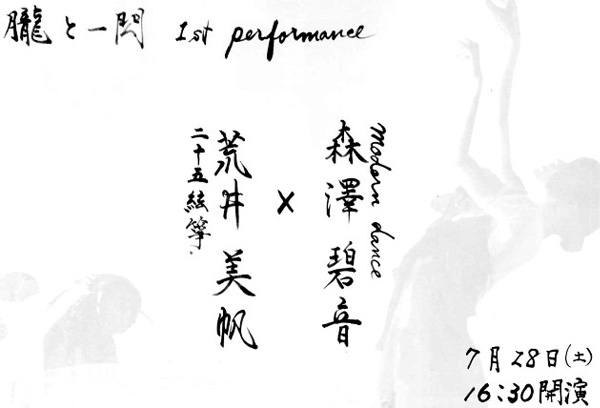 朧と一閃 1st performance
modern dance
森澤碧音
×
荒井美帆
二十五絃箏
7月28日(土)
16:30開演